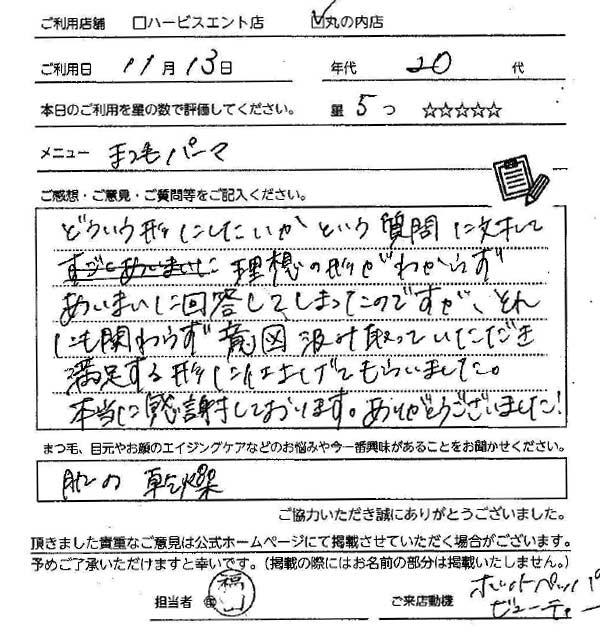 ご利用店舗 □ハービスエント店 ☑丸の内店
ご利用日 11月13日 年代 20 代
本日のご利用を星の数で評価してください。 星 5つ ☆☆☆☆☆
メニュー まつ毛パーマ
ご感想・ご意見・ご質問等をご記入ください。
どういう形にしたいか という質問に対して
すごくあいまいに 理想の形がわからず
あいまいに回答してしまったのですが、それ
にも関わらず意図汲み取っていただき
満足する形に仕上げてもらいました。
本当に感謝しております。ありがとうございました!
まつ毛、目元やお顔のエイジングケアなどのお悩みや今一番興味があることをお聞かせください。
肌の乾燥
ご協力いただき誠にありがとうございました。
頂きました貴重なご意見は公式ホームページにて掲載させていただく場合がございます。
予めご了承いただけますと幸いです。(掲載の際にはお名前の部分は掲載いたしません。)
担当者 福山 ご来店動機 ホットペッパー
ビューティー